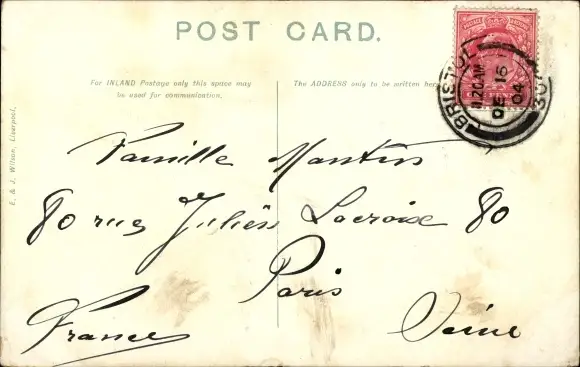 POST CARD.
For INLAND Postage only this space may
be used for communication.
The ADDRESS only to be written here
E. & J. Wilson, Liverpool.
BRISTOL
11.20 AM
DE 16
04
Famille Martin
80 rue Julien Lacroix 80
Paris
France Seine